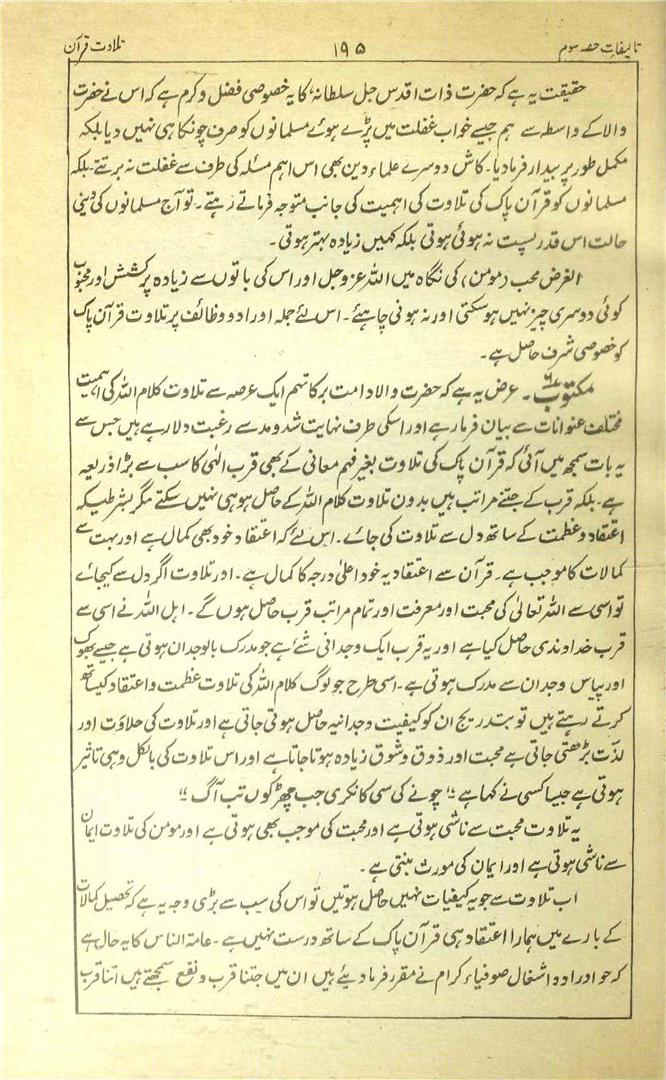 تالیفات حصہ سوم ۱۹۵ تلاوت قرآن
حقیقت یہ ہے کہ حضرت ذات اقدس جل سلطانہٗ کا یہ خصوصی فضل و کرم ہے کہ اس نے حضرت
والا کے واسطہ سے ہم جیسے خواب غفلت میں پڑے ہوئے مسلمانوں کو صرف چونکا ہی نہیں دیا بلکہ
مکمل طور پر بیدار فرما دیا۔ کاش دوسرے علماء دین بھی اس اہم مسئلہ کی طرف سے غفلت نہ برتتے۔ بلکہ
مسلمانوں کو قرآن پاک کی تلاوت کی اہمیت کی جانب متوجہ فرماتے رہتے۔ تو آج مسلمانوں کی دینی
حالت اس قدر پست نہ ہوئی ہوتی بلکہ کہیں زیادہ بہتر ہوتی۔
الغرض محب (مومن) کی نگاہ میں اللہ عز وجل اور اس کی باتوں سے زیادہ پرکشش اور محبوب
کوئی دوسری چیز نہیں ہو سکتی اور نہ ہونی چاہئے۔ اس لئے جملہ اوراد و وظائف پر تلاوت قرآن پاک
کو خصوصی شرف حاصل ہے۔
مکتوب ۔ عرض یہ ہے کہ حضرت والا دامت برکاتہم ایک عرصہ سے تلاوت کلام اللہ کی اہمیت
مختلف عنوانات سے بیان فرما رہے اور اسکی طرف نہایت شد و مد سے رغبت دلا رہے ہیں جس سے
یہ بات سمجھ میں آئی کہ قرآن پاک کی تلاوت بغیر فہم معانی کے بھی قرب الٰہی کا سب سے بڑا ذریعہ
ہے۔ بلکہ قرب کے جتنے مراتب ہیں بدون تلاوت کلام اللہ کے حاصل ہو ہی نہیں سکتے مگر بشرطیکہ
اعتقاد و عظمت کے ساتھ دل سے تلاوت کی جائے۔ اس لئے کہ اعتقاد خود بھی کمال ہے اور بہت سے
کمالات کا موجب ہے۔ قرآن سے اعتقاد یہ خود اعلیٰ درجہ کا کمال ہے۔ اور تلاوت اگر دل سے کیجائے
تو اسی سے اللہ تعالیٰ کی محبت اور معرفت اور تمام مراتب قرب حاصل ہوں گے۔ اہل اللہ نے اسی سے
قرب خداوندی حاصل کیا ہے اور یہ قرب ایک وجدانی شئے ہے جو مدرک بالوجدان ہوتی ہے جیسے بھوک
اور پیاس وجدان سے مدرک ہوتی ہے۔ اسی طرح جو لوگ کلام اللہ کی تلاوت عظمت و اعتقاد کیساتھ
کرتے رہتے ہیں تو بتدریج ان کو کیفیت وجدانیہ حاصل ہوتی جاتی ہے اور تلاوت کی حلاوت اور
لذت بڑھتی جاتی ہے محبت اور ذوق و شوق زیادہ ہوتا جاتا ہے اور اس تلاوت کی بالکل وہی تاثیر
ہوتی ہے جیسا کسی نے کہا ہے "چونے کی سی کانکری جب چھڑکوں تب آگ"
یہ تلاوت محبت سے ناشی ہوتی ہے اور محبت کی موجب بھی ہوتی ہے اور مومن کی تلاوت ایمان
سے ناشی ہوتی ہے اور ایمان کی مورث بنتی ہے۔
اب تلاوت سے جو یہ کیفیات نہیں حاصل ہوتیں تو اس کی سب سے بڑی وجہ یہ ہے کہ تحصیل کمالات
کے بارے میں ہمارا اعتقاد ہی قرآن پاک کے ساتھ درست نہیں ہے۔ عامۃ الناس کا یہ حال ہے
کہ جو اوراد و اشغال صوفیاء کرام نے مقرر فرما دیئے ہیں ان میں جتنا قرب و نفع سمجھتے ہیں اتنا قرب